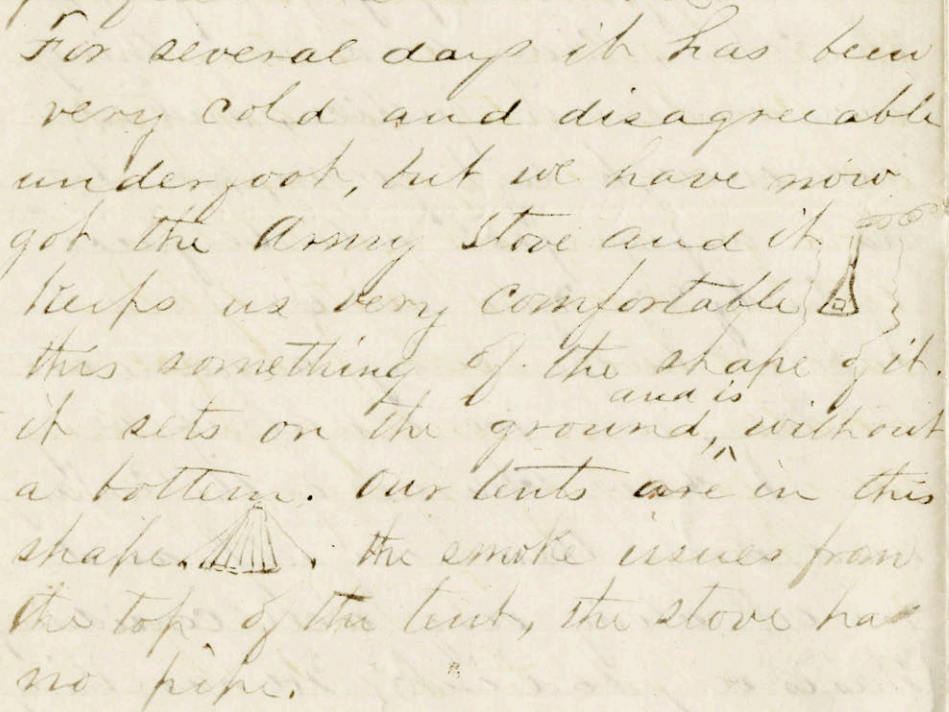 For several days it has been
very cold and disagreeable
underfoot, but we have now
got the Army Stove and it
keeps us very comfortable
this something of the shape of it.
and is
it sets on the ground, ^ without
a bottem. Our tents are in this
shape. . the smoke issues from
the top of the tent, the stove has
no pipe.